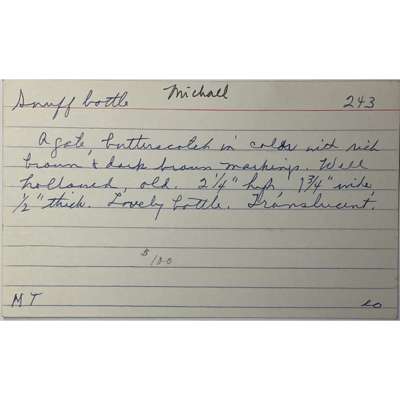 Snuff bottle Michael 243
Agate, butterscotch in color with rich
brown & dark brown markings. Well
hollowed, old. 2 1/4" high, 1 3/4" wide,
1/2" thick. Lovely bottle. Translucent.
$100
MT